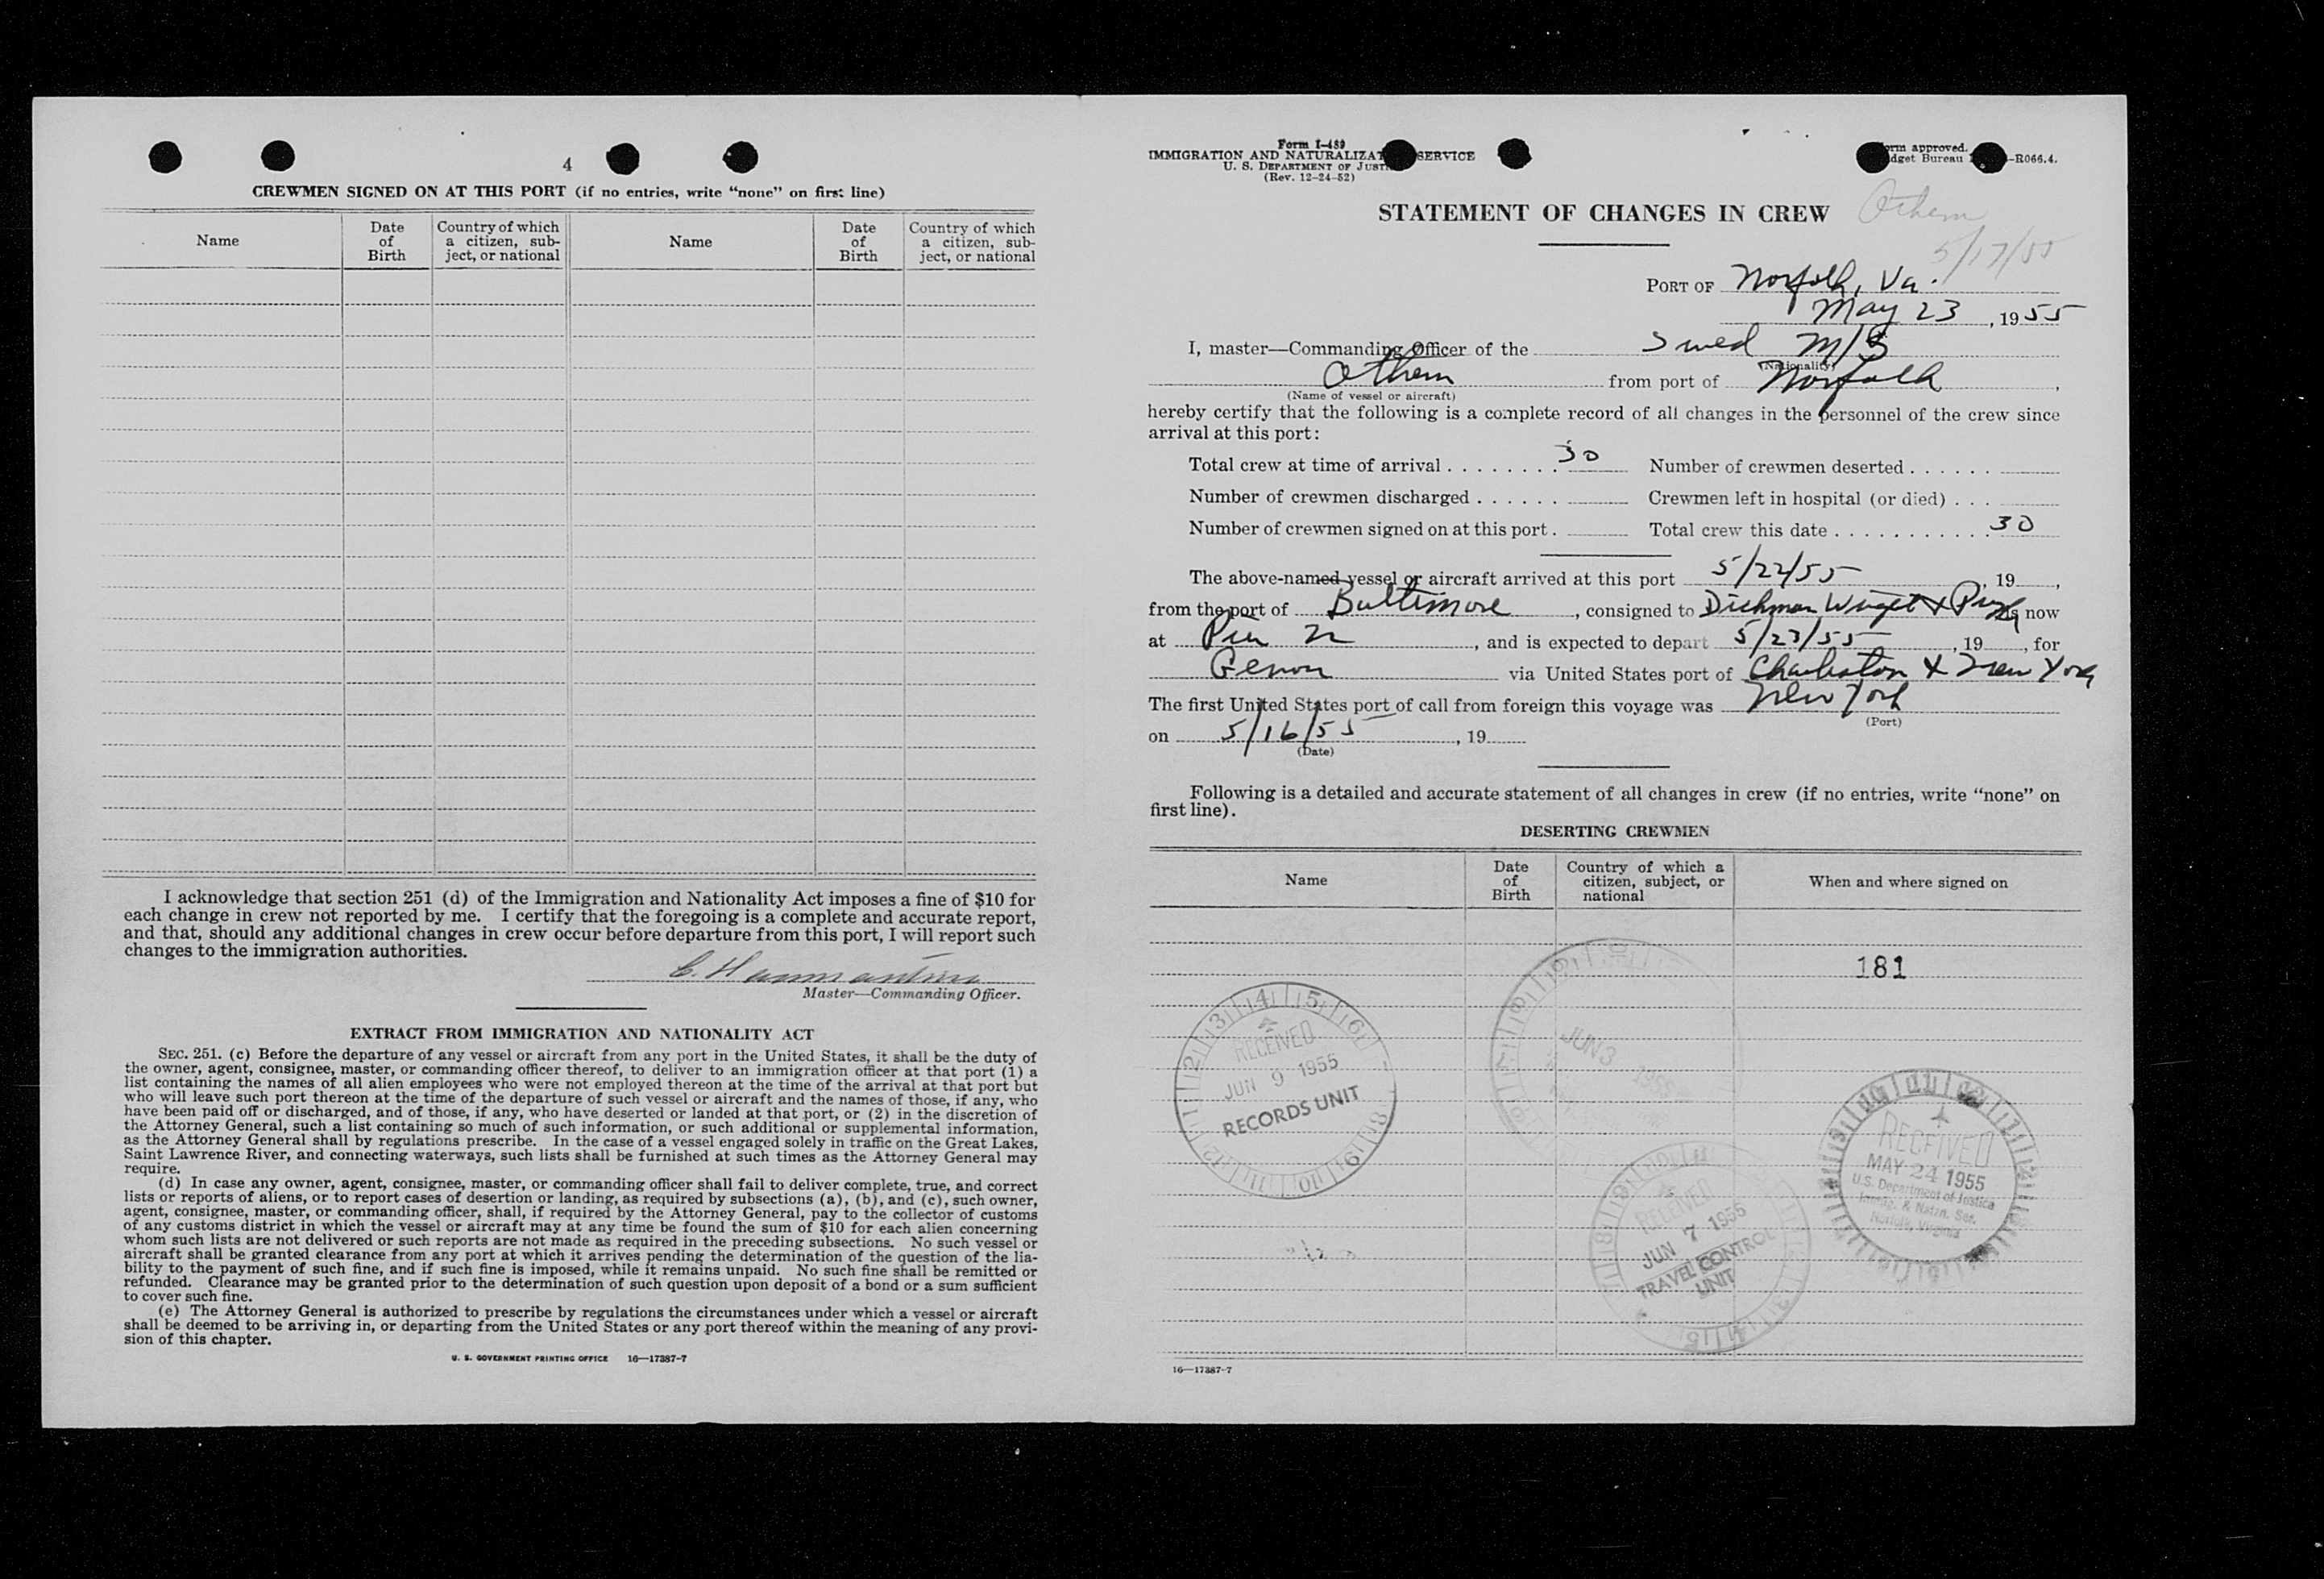 4
CREWMEN SIGNED ON AT THIS PORT (if no entries, write “none” on first line)
Name
Date of Birth
Country of which a citizen, subject, or national
Name
Date of Birth
Country of which a citizen, subject, or national
I acknowledge that section 251 (d) of the Immigration and Nationality Act imposes a fine of $10 for
each change in crew not reported by me. I certify that the foregoing is a complete and accurate report,
and that, should any additional changes in crew occur before departure from this port, I will report such
changes to the immigration authorities.
C.
Master—Commanding Officer.
EXTRACT FROM IMMIGRATION AND NATIONALITY ACT
SEC. 251. (c) Before the departure of any vessel or aircraft from any port in the United States, it shall be the duty of
the owner, agent, consignee, master, or commanding officer thereof, to deliver to an immigration officer at that port (1) a
list containing the names of all alien employees who were not employed thereon at the time of the arrival at that port but
who will leave such port thereon at the time of the departure of such vessel or aircraft and the names of those, if any, who
have been paid off or discharged, and of those, if any, who have deserted or landed at that port, or (2) in the discretion of
the Attorney General, such a list containing so much of such information, or such additional or supplemental information,
as the Attorney General shall by regulations prescribe. In the case of a vessel engaged solely in traffic on the Great Lakes,
Saint Lawrence River, and connecting waterways, such lists shall be furnished at such times as the Attorney General may
require.
(d) In case any owner, agent, consignee, master, or commanding officer shall fail to deliver complete, true, and correct
lists or reports of aliens, or to report cases of desertion or landing, as required by subsections (a), (b), and (c), such owner,
agent, consignee, master, or commanding officer, shall, if required by the Attorney General, pay to the collector of customs
of any customs district in which the vessel or aircraft may at any time be found the sum of $10 for each alien concerning
whom such lists are not delivered or such reports are not made as required in the preceding subsections. No such vessel or
aircraft shall be granted clearance from any port at which it arrives pending the determination of the question of the lia-
bility to the payment of such fine, and if such fine is imposed, while it remains unpaid. No such fine shall be remitted or
refunded. Clearance may be granted prior to the determination of such question upon deposit of a bond or a sum sufficient
to cover such fine.
(e) The Attorney General is authorized to prescribe by regulations the circumstances under which a vessel or aircraft
shall be deemed to be arriving in, or departing from the United States or any port thereof within the meaning of any provi-
sion of this chapter.
U. S. GOVERNMENT PRINTING OFFICE 16—17387-7
Form I-489
IMMIGRATION AND NATURALIZAT SERVICE
U. S. DEPARTMENT OF JUST
(Rev. 12-24-52)
orm approved.
dget Bureau -R066.4.
STATEMENT OF CHANGES IN CREW
Othem
5/17/55
PORT OF Norfolk, Va.
May 23, 1955
I, master—Commanding Officer of the Swed M/S
(Nationality)
Othem from port of Norfolk,
(Name of vessel or aircraft)
hereby certify that the following is a complete record of all changes in the personnel of the crew since
arrival at this port:
Total crew at time of arrival 30 Number of crewmen deserted
Number of crewmen discharged Crewmen left in hospital (or died)
Number of crewmen signed on at this port. Total crew this date 30
The above-named vessel or aircraft arrived at this port 5/22/55, 19,
from the port of Baltimore, consigned to Dichman Wright & Pugh is now
at Pier N, and is expected to depart 5/23/55, 19, for
via United States port of Charleston & New York
The first United States port of call from foreign this voyage was New York
(Port)
on 5/16/55, 19
(Date)
Following is a detailed and accurate statement of all changes in crew (if no entries, write “none” on
first line).
DESERTING CREWMEN
Name
Date of Birth
Country of which a citizen, subject, or national
When and where signed on
181
RECEIVED
JUN 9 1955
RECORDS UNIT
JUN 3 1955
RECEIVED
JUN 7 1955
TRAVEL CONTROL
UNIT
RECEIVED
MAY 24 1955
U.S. Department of Justice
Immig. & Natzn. Ser.
Norfolk, Virginia
16—17387-7